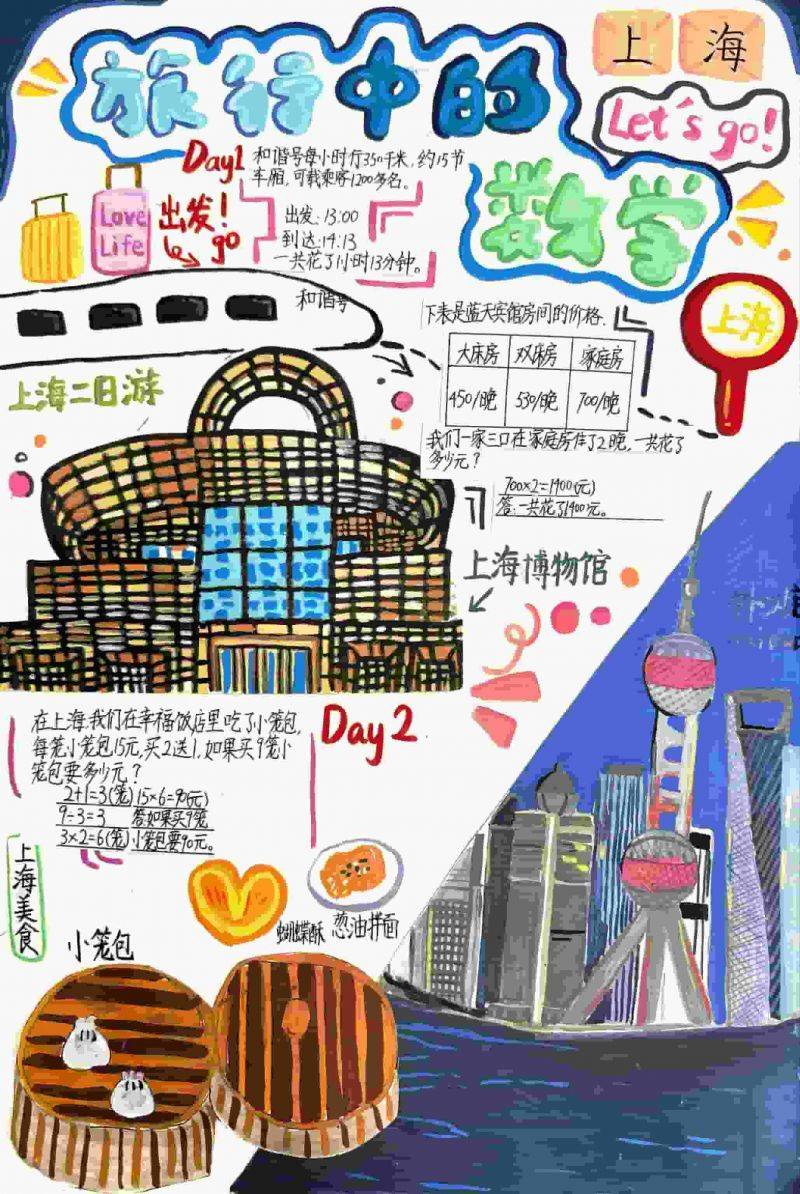 上海
Let's go!
旅行中的
数学
Day1
和谐号每小时行350千米，约15节
车厢，可载乘客1200多名。
Love
Life
出发！
go
出发：13:00
到达：14:13
一共花了1小时13分钟。
和谐号
上海二日游
上海
下表是蓝天宾馆房间的价格.
大床房 双床房 家庭房
450/晚 530/晚 700/晚
我们一家三口在家庭房住了2晚，一共花了
多少元？
700×2=1400(元)
答：一共花了1400元。
上海博物馆
Day 2
在上海,我们在幸福饭店里吃了小笼包,
每笼小笼包15元,买2送1,如果买9笼小
笼包要多少元？
2+1=3(笼) 15×6=90(元)
9÷3=3 答如果买9笼
3×2=6(笼) 小笼包要90元。
上海美食
小笼包
蝴蝶酥
葱油拌面